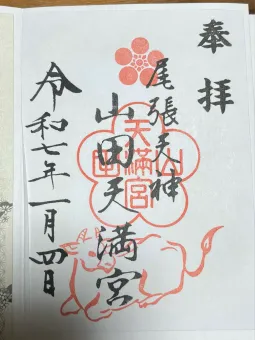 奉拝
尾張天神
山田天満宮
令和七年一月四日
山田
天満宮